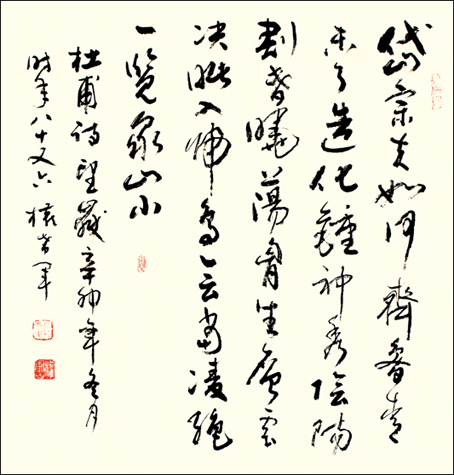 岱宗夫如何齊魯青
未了造化鍾神秀陰陽
割昏曉蕩胸生層雲
决眦入歸鳥会當凌絕
一覽眾山小
杜甫詩望嶽辛卯年冬月
時年八十又六